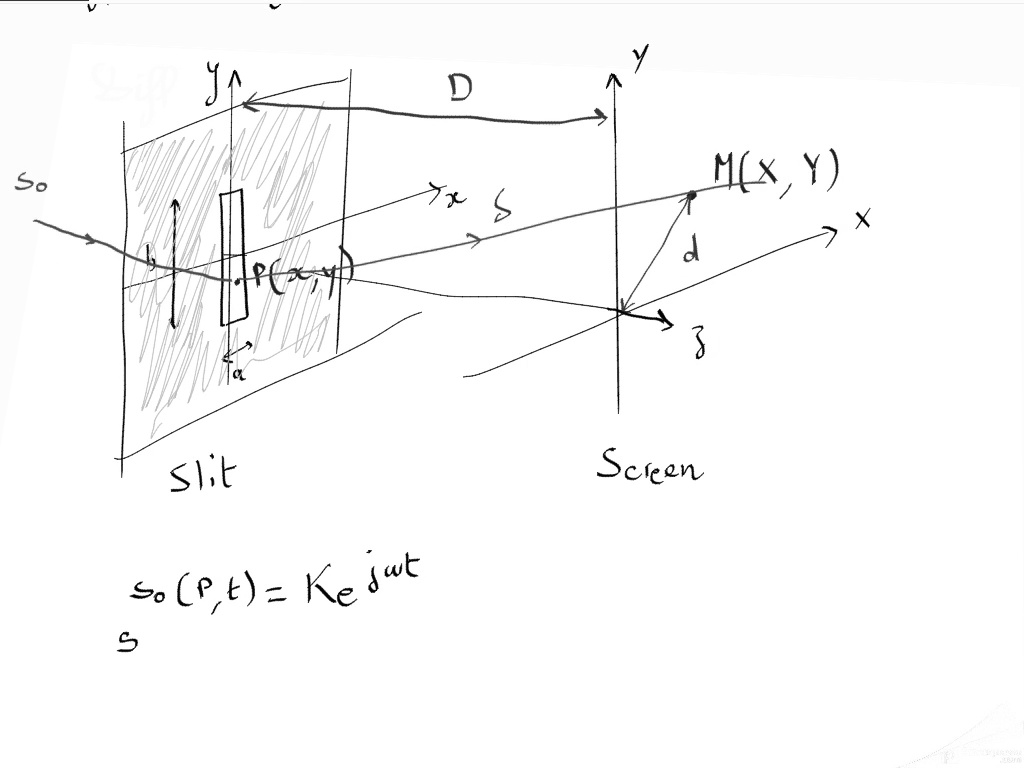 y
D
Y
M(X, Y)
s₀
x
S
X
b
P(x, y)
d
z
a
Slit
Screen
s₀(P, t) = K e^{jωt}
S